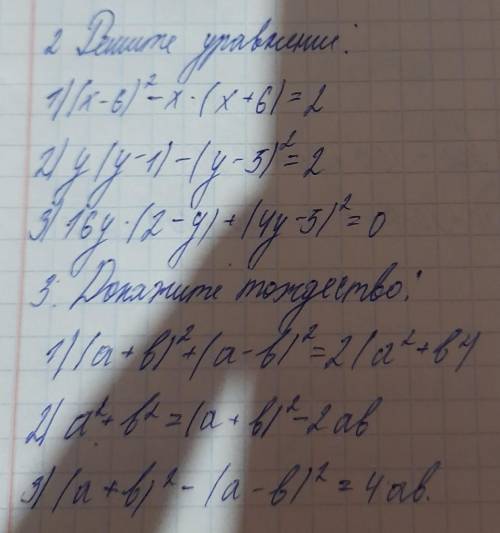 2 Решите уравнение:
1) (x-6)² - x · (x+6) = 2
2) y (y-1) - (y-5)² = 2
3) 16y · (2-y) + (4y-5)² = 0
3. Докажите тождество:
1) (a+b)² + (a-b)² = 2(a²+b²)
2) a² + b² = (a+b)² - 2ab
3) (a+b)² - (a-b)² = 4ab.